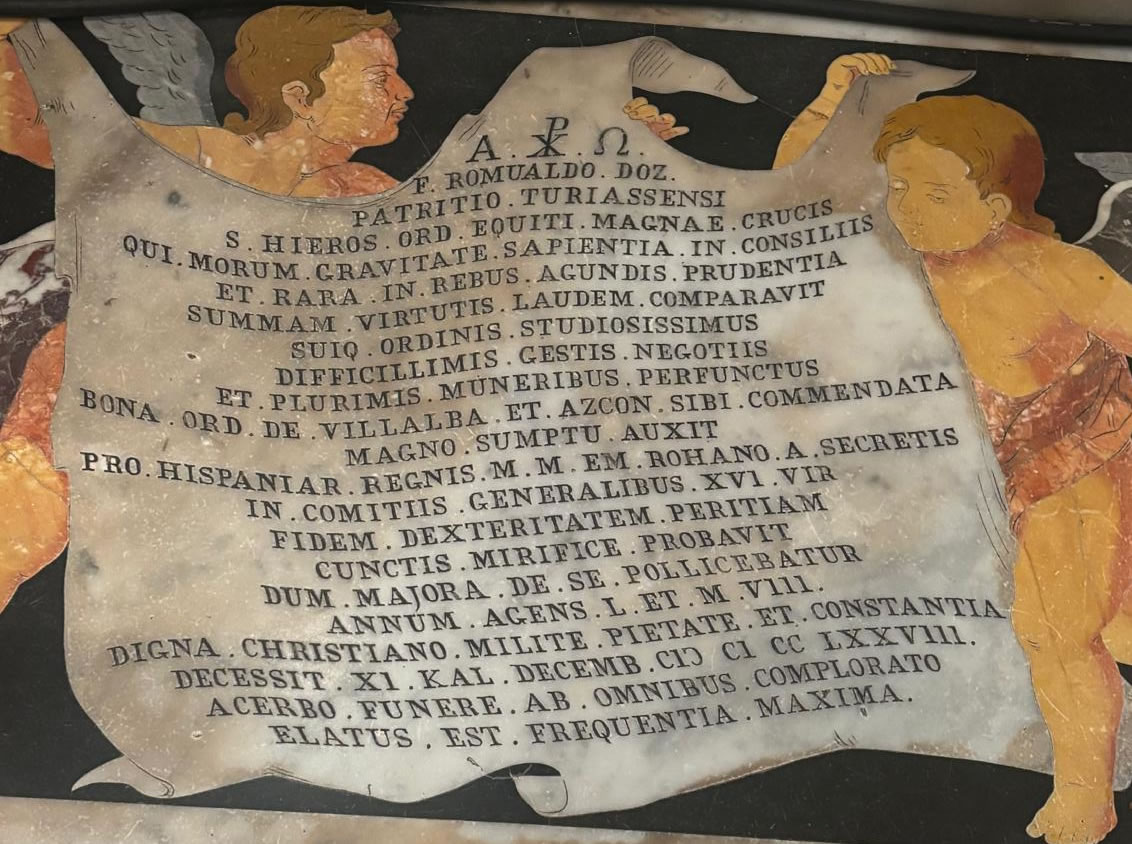 A . ☧ . Ω .
F . ROMUALDO . DOZ .
PATRITIO . TURIASSENSI
S . HIEROS . ORD . EQUITI . MAGNAE . CRUCIS
QUI . MORUM . GRAVITATE . SAPIENTIA . IN . CONSILIIS
ET . RARA . IN . REBUS . AGUNDIS . PRUDENTIA
SUMMAM . VIRTUTIS . LAUDEM . COMPARAVIT
SUIQ . ORDINIS . STUDIOSISSIMUS
DIFFICILLIMIS . GESTIS . NEGOTIIS
ET . PLURIMIS . MUNERIBUS . PERFUNCTUS
BONA . ORD . DE . VILLALBA . ET . AZCON . SIBI . COMMENDATA
MAGNO . SUMPTU . AUXIT
PRO . HISPANIAR . REGNIS . M . M . EM . ROHANO . A . SECRETIS
IN . COMITIIS . GENERALIBUS . XVI . VIR
FIDEM . DEXTERITATEM . PERITIAM
CUNCTIS . MIRIFICE . PROBAVIT
DUM . MAJORA . DE . SE . POLLICEBATUR
ANNUM . AGENS . L . ET . M . VIII .
DIGNA . CHRISTIANO . MILITE . PIETATE . ET . CONSTANTIA
DECESSIT . XI . KAL . DECEMB . CIↃ CI CC LXXVIII .
ACERBO . FUNERE . AB . OMNIBUS . COMPLORATO
ELATUS . EST . FREQUENTIA . MAXIMA .